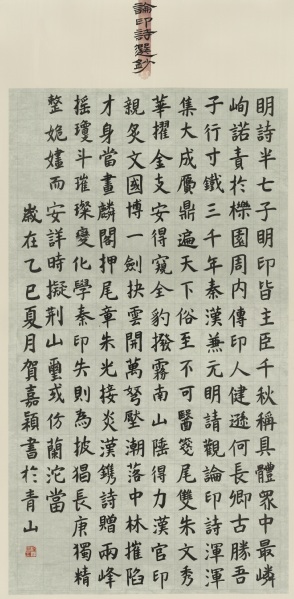 論印詩選鈔
明詩半七子明印皆主臣千秋稱具體眾中最嶙
峋諾責於櫟園周內傳印人健遜何長卿古勝吾
子行寸鐵三千年秦漢兼元明請觀論印詩渾渾
集大成贗鼎遍天下俗至不可醫箋尾雙朱文秀
華擢金支安得窺全豹撥霧南山陲得力漢官印
親炙文國博一劍抉雲開萬弩壓潮落中林摧陷
才身當畫麟閣押尾章朱光接炎漢鐫詩贈兩峰
搖瓊斗璀璨變化學秦印失則為披猖長庚獨精
整姽嫿而安詳時擬荊山璽或仿蘭沱當
歲在乙巳夏月賀嘉穎書於青山